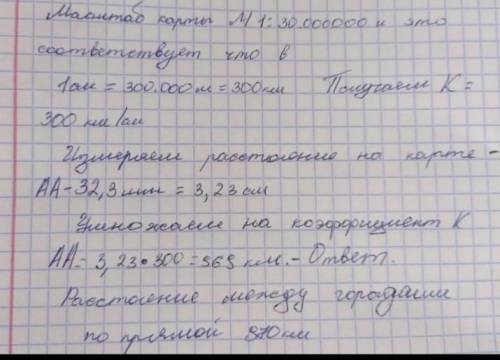 Масштаб карты М 1:30.000000 и это
соответствует что в
1см = 300.000 м = 300 км Получаем К =
300 км/см
Измеряем расстояние на карте -
АА - 32,3 мм = 3,23 см
Умножаем на коэффициент К
АА - 3,23 • 300 = 969 км. - Ответ.
Расстояние между городами
по прямой 970 км